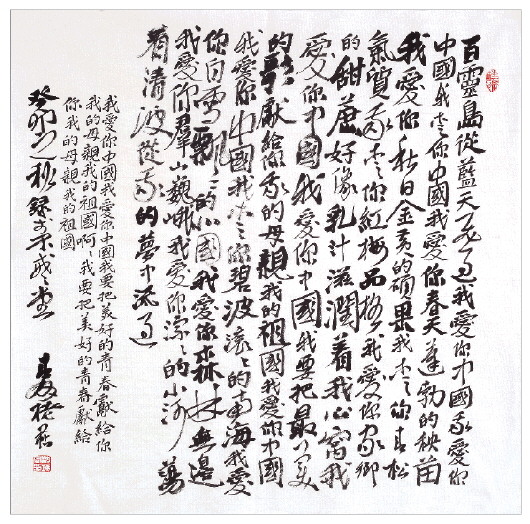 百靈鳥從藍天飛過我愛你中國我愛你
中國我愛你中國我愛你春天蓬勃的秧苗
我愛你秋日金黄的碩果我愛你青松
氣質我愛你紅梅品格我愛你家鄉
的甜蔗好像乳汁滋潤着我心窩我
愛你中國我愛你中國我要把最美
的歌獻給你我的母親我的祖國我愛你中國
我愛你中國我愛你碧波滚々的南海我愛
你白雪飄々的北國我愛你森林無邊
我愛你群山巍峨我愛你淙々的小河蕩
着清波從我的夢中流過
我愛你中國我愛你中國我要把美好的青春獻給你
我的母親我的祖國啊々我要把美好的青春獻給
你我的母親我的祖國
癸卯之秋錄於未成堂